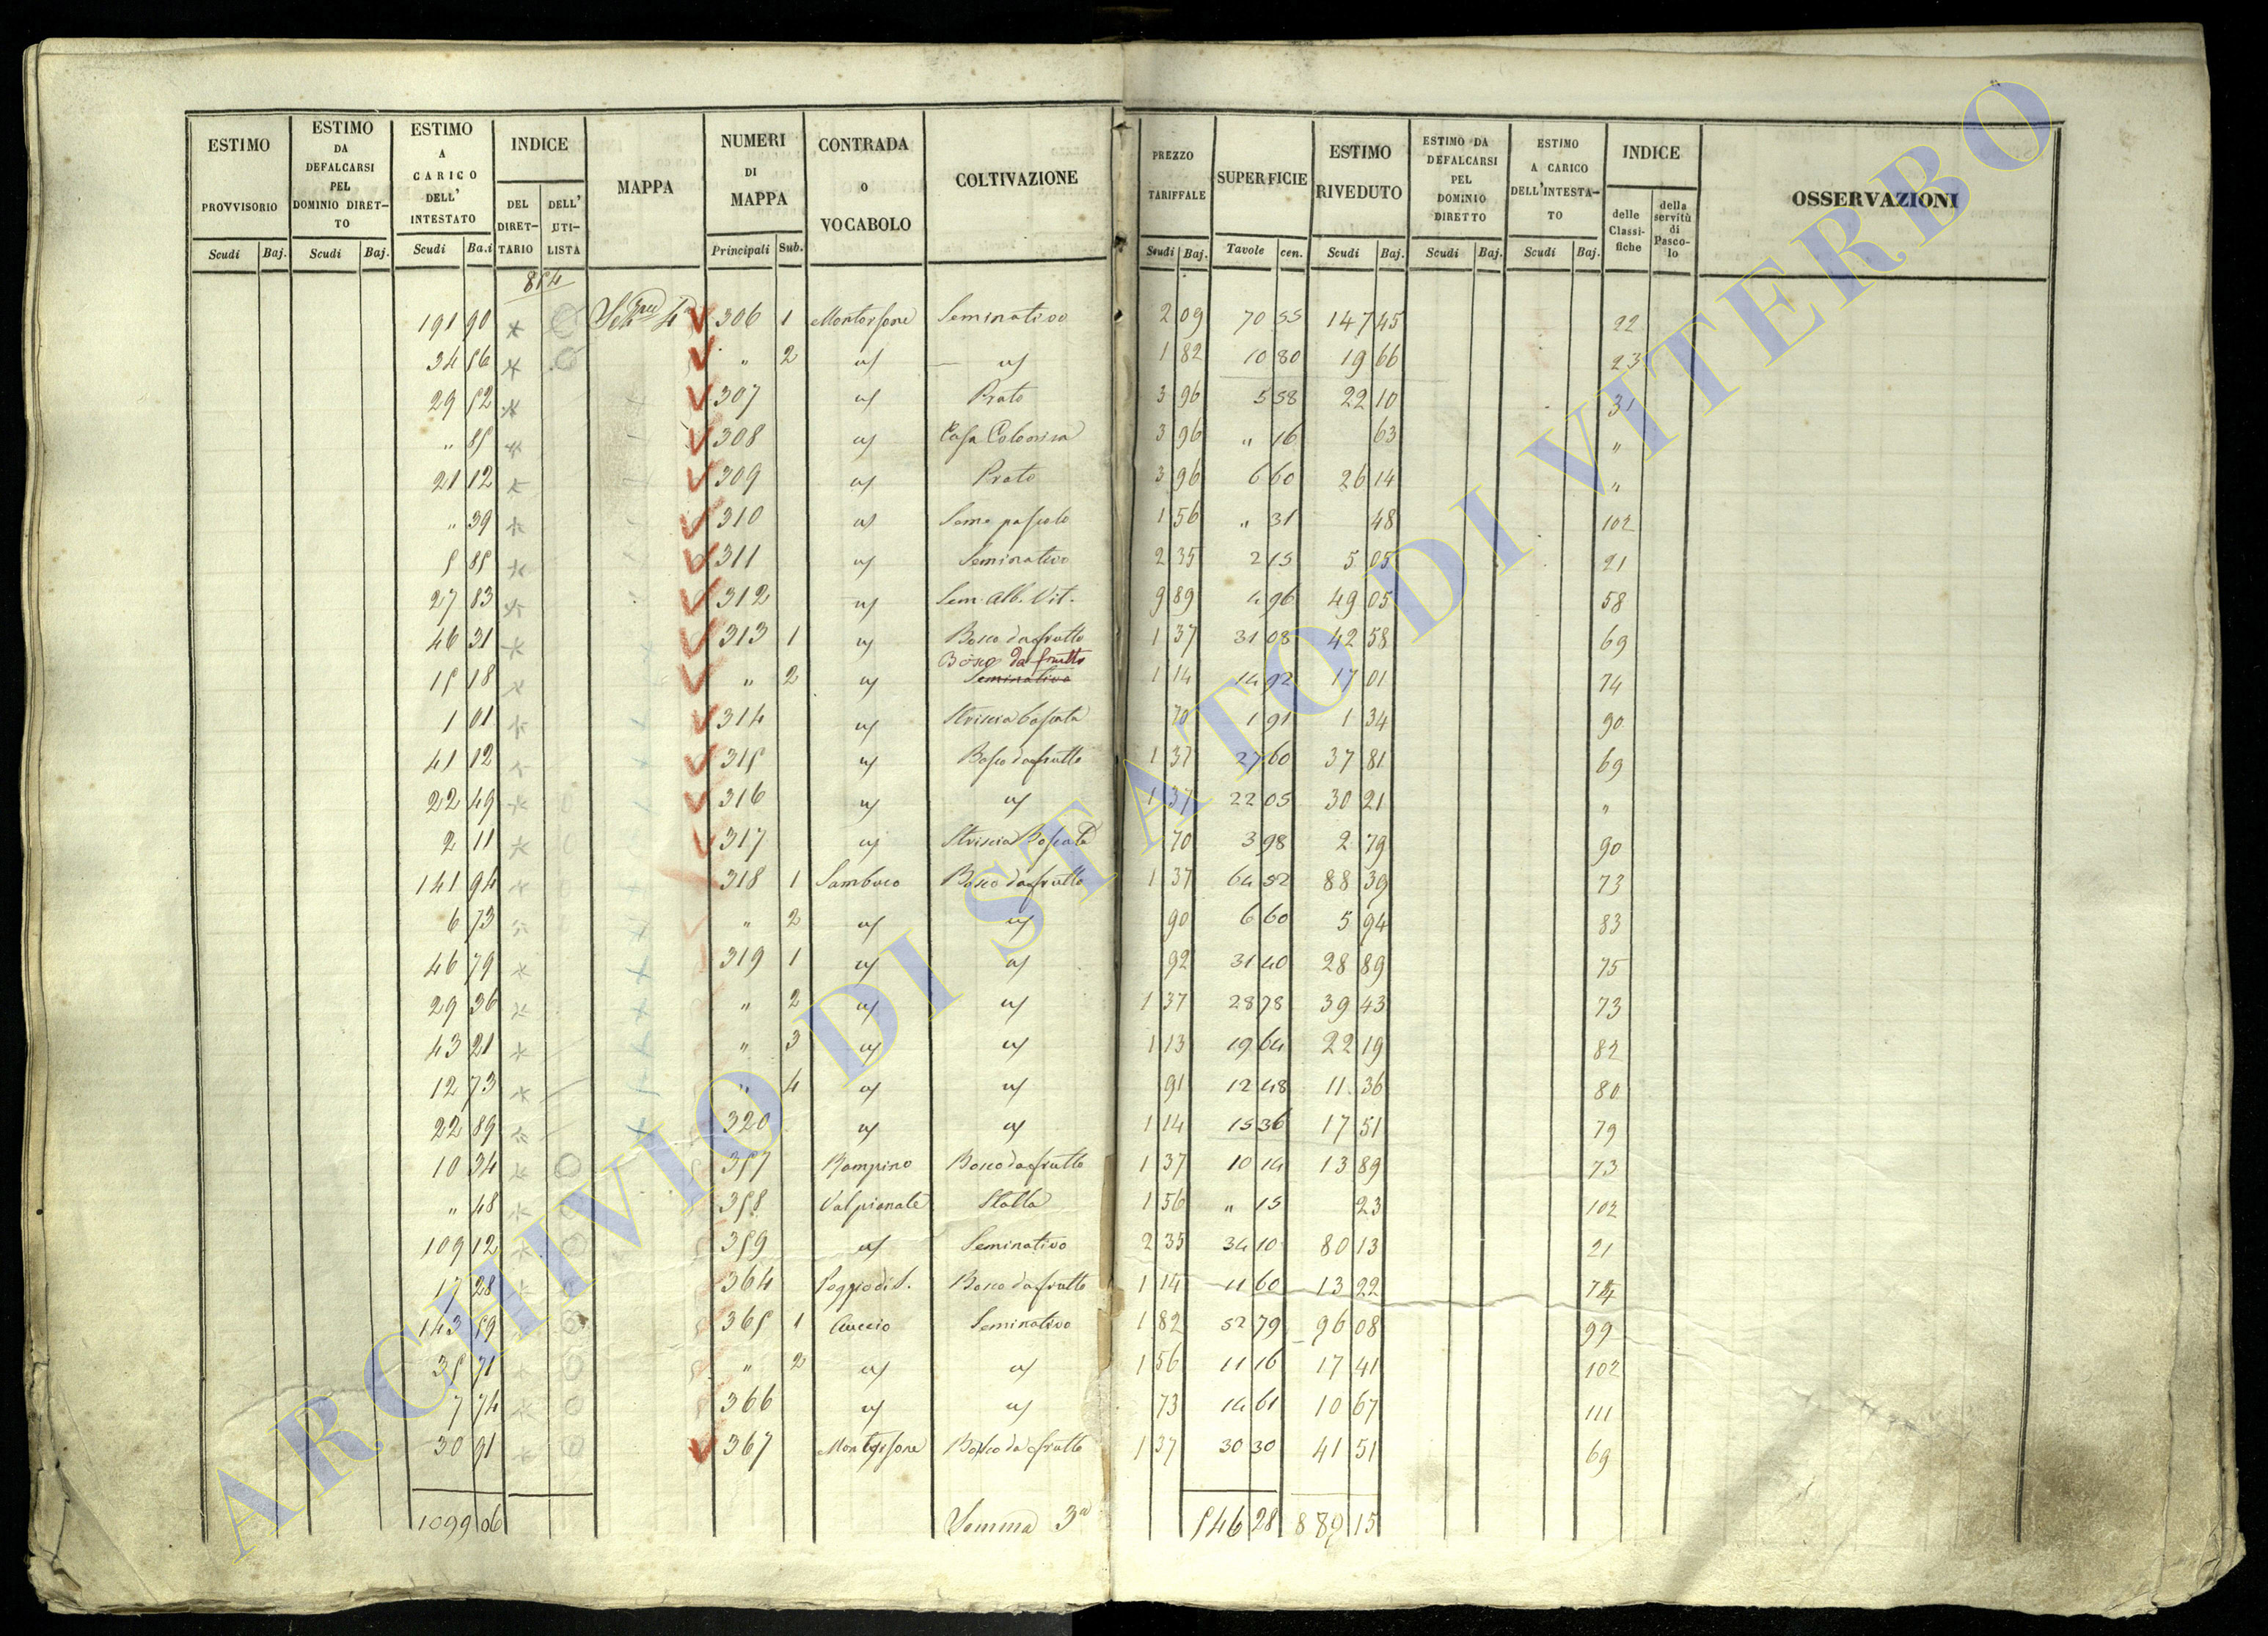 ESTIMO PROVVISORIO Scudi Baj. | ESTIMO DA DEFALCARSI PEL DOMINIO DIRETTO Scudi Baj. | ESTIMO A CARICO DELL' INTESTATO Scudi Ba.i | INDICE DEL DIRETTARIO DELL' UTILISTA | MAPPA | NUMERI DI MAPPA Principali Sub. | CONTRADA O VOCABOLO | COLTIVAZIONE | PREZZO TARIFFALE Scudi Baj. | SUPERFICIE Tavole cen. | ESTIMO RIVEDUTO Scudi Baj. | ESTIMO DA DEFALCARSI PEL DOMINIO DIRETTO Scudi Baj. | ESTIMO A CARICO DELL'INTESTATO Scudi Baj. | INDICE delle Classifiche della servitù di Pascolo | OSSERVAZIONI
854
191 90 306 1 Montorsone Seminativo 2 09 70 55 147 45 22
34 56 " 2 " " 1 82 10 80 19 66 23
29 52 307 " Prato 3 96 5 58 22 10 31
" 85 308 " Casa Colonica 3 96 " 16 63 "
21 12 309 " Prato 3 96 6 60 26 14 "
" 39 310 " Seme pascolo 1 56 " 31 48 102
5 85 311 " Seminativo 2 35 2 15 5 05 21
27 83 312 " Sem. Alb. Vit. 9 89 4 96 49 05 58
46 31 313 1 " Bosco da frutto 1 37 31 08 42 58 69
Bosco da frutto
15 18 " 2 " Seminativo 1 14 14 92 17 01 74
1 01 314 " Striscia boscata 70 1 91 1 34 90
41 12 315 " Bosco da frutto 1 37 27 60 37 81 69
22 49 316 " " 1 37 22 05 30 21 "
2 11 317 " Striscia Boscata 70 3 98 2 79 90
141 94 318 1 Sambuco Bosco da frutto 1 37 64 52 88 39 73
6 73 " 2 " " 90 6 60 5 94 83
46 79 319 1 " " 92 31 40 28 89 75
29 36 " 2 " " 1 37 28 78 39 43 73
43 21 " 3 " " 1 13 19 64 22 19 82
12 73 " 4 " " 91 12 48 11 36 80
22 89 320 " " 1 14 15 36 17 51 79
10 34 357 Rampino Bosco da frutto 1 37 10 14 13 89 73
" 48 358 Valpianata Stalla 1 56 " 15 23 102
109 12 359 " Seminativo 2 35 34 10 80 13 21
17 28 364 Poggio di S. Bosco da frutto 1 14 11 60 13 22 74
143 59 365 1 Seminativo 1 82 52 79 96 08 99
35 71 " 2 " " 1 56 11 16 17 41 102
7 74 366 " " 73 14 61 10 67 111
30 91 367 Montorsone Bosco da frutto 1 37 30 30 41 51 69
1099 06 Somma 3a 546 28 889 15
ARCHIVIO DI STATO DI VITERBO